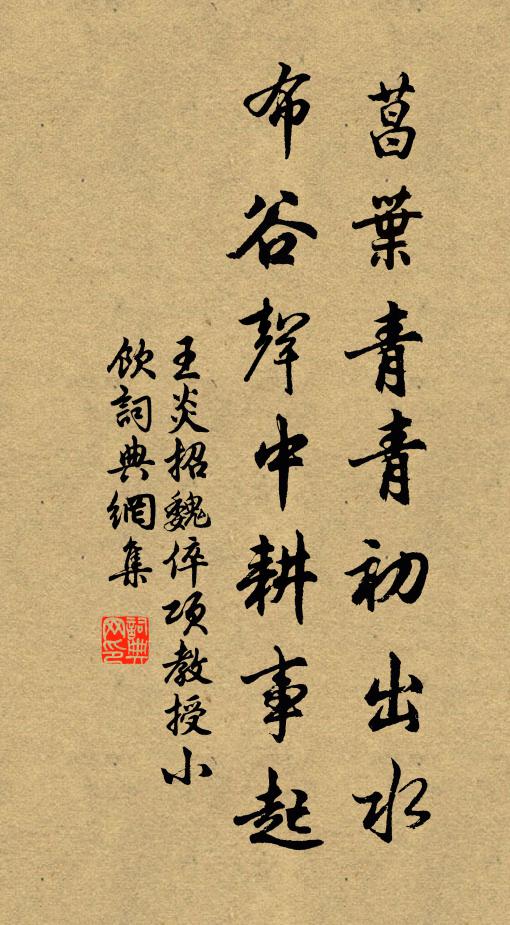 菖葉青青初出水
布谷聲中耕事起
王炎招魏倅項教授小
飲詞典網集
詞典
网印